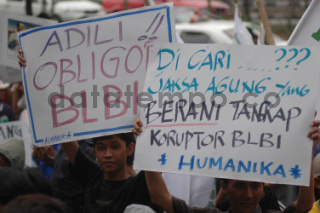 ADILI !!
OBLIGOR
BLBI
HUMANIKA
DI CARI .....???
JAKSA AGUNG Yang
BERANI TANGKAP
KORUPTOR BLBI
* HUMANIKA *
datatempo.co